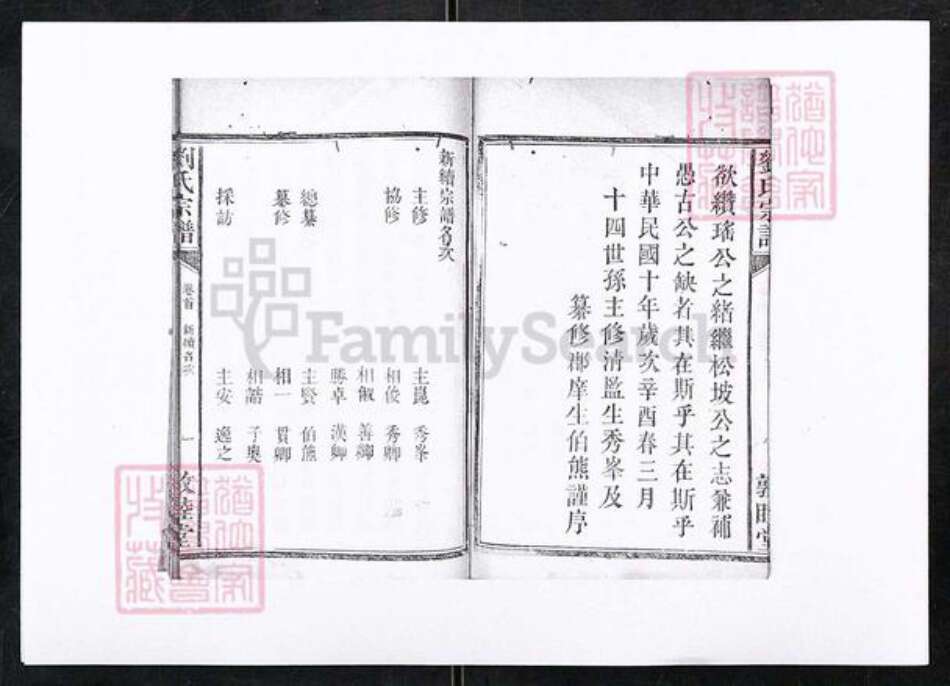 劉氏宗譜
欲纘瑤公之緒繼松坡公之志兼補
愚古公之缺者其在斯乎其在斯乎
中華民國十年歲次辛酉春三月
十四世孫主修清監生秀峯及
纂修郡庠生伯熊謹序
敦睦堂
新續宗譜名次
主修 主崑 秀峯
協修 相俊 秀卿
相儆 善卿
勝卓 漢卿
總纂 主賢 伯熊
纂修 相一 貫卿
相誥 子奧
採訪 主安 逸之
劉氏宗譜
卷首 新續名次 一
敦睦堂
FamilySearch